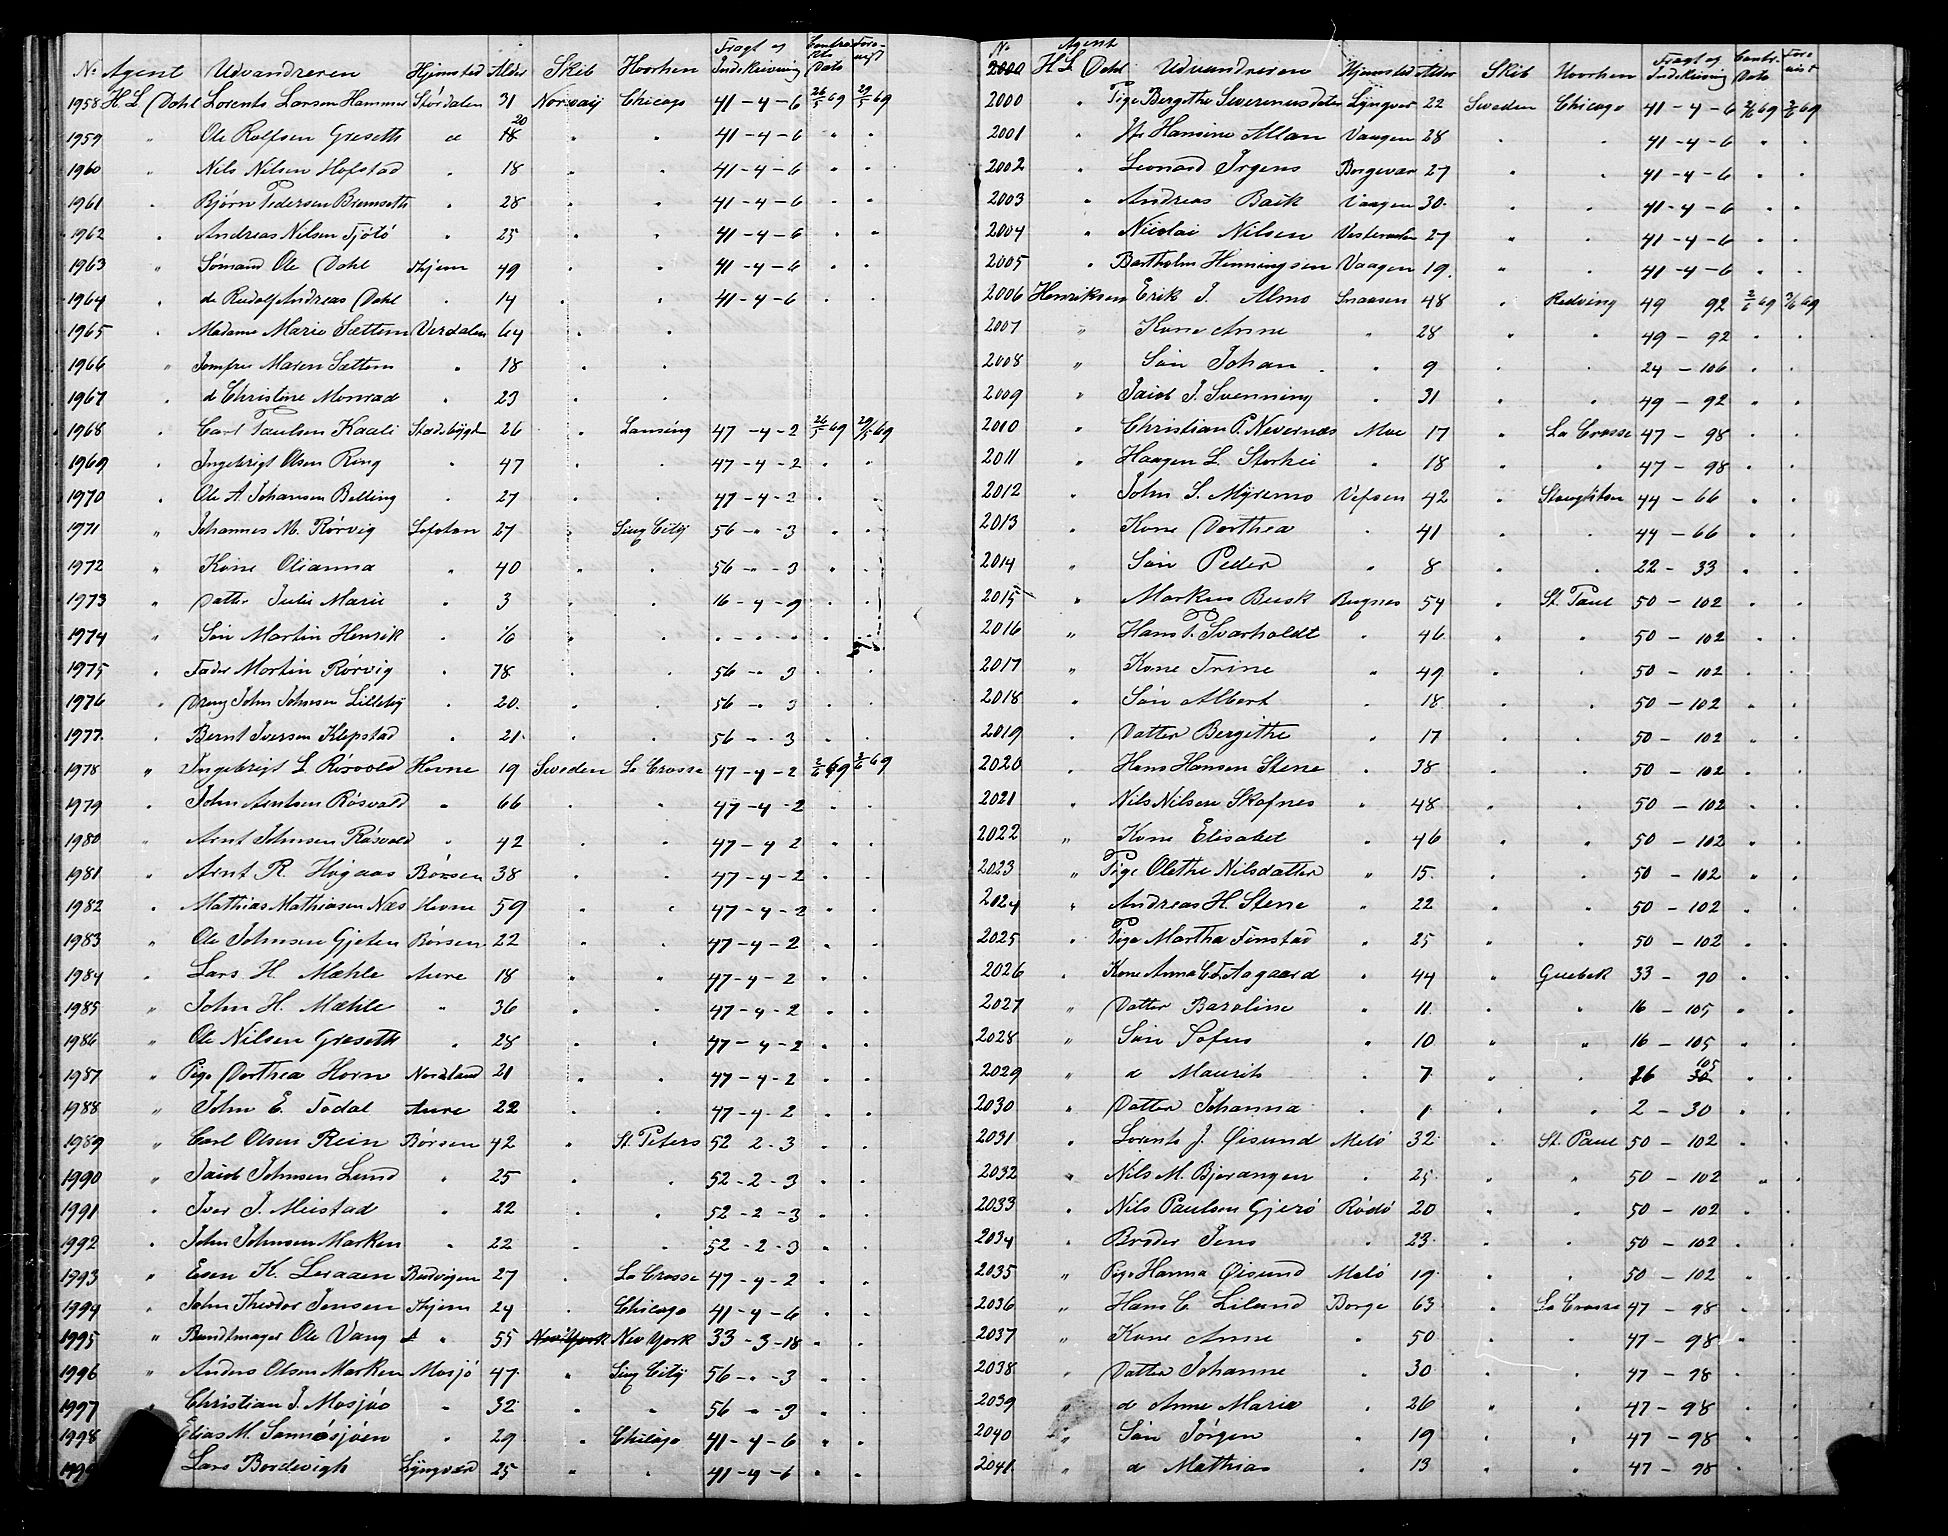 No Agent Udvandreren Hjemsted Alder Skib Hvorhen Fragt og Indskrivning Contra Dato
1958 H L Dahl Lorents Larsen Hammer Stördalen 31 Norway Chicago 41-4-6 26/5 69 29/5 69
1959 " Ole Rolfsen Gresseth d 20 18 " " 41-4-6 " "
1960 " Nils Nilsen Hofstad " 18 " " 41-4-6 " "
1961 " Bjørn Pedersen Bremseth " 28 " " 41-4-6 " "
1962 " Andreas Nilsen Tjötö " 25 " " 41-4-6 " "
1963 " Sömand Ole Dahl Thjem 49 " " 41-4-6 " "
1964 " do Rudolf Andreas Dahl " 14 " " 41-4-6 " "
1965 " Madame Marie Sættem Verdalen 64 " "
1966 " Jomfru Maren Sættem " 18 " "
1967 " d Christine Monrad " 23 " "
1968 " Carl Paulsen Kaali Stadsbygd 26 " Lansing 47-4-2 26/5 69 29/5 69
1969 " Ingebrigt Olsen Ring " 47 " " 47-4-2 " "
1970 " Ole A. Johansen Belling " 27 " " 47-4-2 " "
1971 " Johannes M. Rørvig Lofoten 27 " Siug City 56 - " - 3 " "
1972 " Kone Olianna " 40 " " 56 - " - 3 " "
1973 " Datter Julie Marie " 3 " " 16-4-9 " "
1974 " Søn Martin Henrik " 1/6 " " " " "
1975 " Fader Mortin Rørvig " 78 " " 56 - " 3 " "
1976 " Dreng John Johnsen Lilleby " 20 " " 56 - " 3 " "
1977 " Bernt Iversen Klepstad " 21 " " 56 - " 3 " "
1978 " Ingebrigt L Rösvold Hevne 19 Sweden La Crosse 47-4-2 2/6 69 2/6 69
1979 " John Arntsen Rösvold " 66 " " 47-4-2 " "
1980 " Arnt Johnsen Rösvold " 42 " " 47-4 2 " "
1981 " Arnt R. Högaas Börsen 38 " " 47-4-2 " "
1982 " Mathias Mathiasen Næs Hevne 59 " " 47-4-2 " "
1983 " Ole Johnsen Gjeten Børsen 22 " " 47-4-2 " "
1984 " Lars H. Mæhle Aure 18 " " 47-4-2 " "
1985 " John H. Mæhle " 36 " " 47-4-2 " "
1986 " Ole Nilsen Greseth " 28 " " 47-4-2 " "
1987 " Pige Dorthea Horn Nordland 21 " " 47-4-2 " "
1988 " John E. Todal Aure 22 " " 47-4-2 " "
1989 " Carl Olsen Rein Börsen 42 " St. Peters 52 2-3 " "
1990 " Jacob Johnsen Lund " 25 " " 52-2-3 " "
1991 " Iver J. Meistad " 22 " " 52-2-3 " "
1992 " John Johnsen Marken " 22 " " 52-2-3 " "
1993 " Esen K. Leraaen Budvigen 27 " La Crosse 47-4-2 " "
1994 " John Theodor Jensen Thjem 24 " Chicago 41-4-6 " "
1995 " Bundtmager Ole Vang d " 55 New York New York 33-3-18 " "
1996 " Anders Olsen Marken Mosjö 47 " Siug City 56 - " -3 " "
1997 " Christian J. Mosjøo " 32 " " 56 - " -3 " "
1998 Elias M. Sannesjöen " 29 " Chicago 41-4-6 " "
Lars Bordevigh Lyngvær 25 " " 41-4-6 " "
No Agent
2000 H L Dahl Udvandreren Hjemsted Alder Skib Hvorhen Fragt og Indskrivning Contr. Dato
2000 " Pige Bergithe Severensdatter Lyngvær 22 Sweden Chicago 41-4-6 2/6 69 2/6 69
2001 " Jfr Hansine Allan Vaagen 28 " " 41-4-6 " "
2002 " Leonard Irgens Borgevær 27 " " 41-4-6 " "
2003 " Andreas Baik Vaagen 30 " " 41-4-6 " "
2004 " Nicolai Nilsen Vesteraalen 27 " " 41-4-6 " "
2005 " Bartholm Henningsen Vaagen 19 " " 41-4-6 " "
2006 Henriksen Erik J. Almo Snaasen 48 " Redving 49 92 2/6 69 3/6 69
2007 " Kone Anne " 28 " " 49 - 92 " "
2008 " Søn Johan " 9 " 24 - 106 " "
2009 " Jacob J. Svenning " 31 " 49 - 92 " "
2010 " Christian P. Nevernæs Moe 17 " La Crosse 47 - 98 " "
2011 " Haagen L. Storhei " 18 " " 47 - 98 " "
2012 " John S. Myremo Vefsen 42 " Stoughton 44 - 66 " "
2013 " Kone Dorthea " 41 " " 44 - 66 " "
2014 " Søn Peder " 8 " " 22 - 33 " "
2015 " Markus Busk Bugnes 54 " St. Paul 50 - 102 " "
2016 " Hans P. Svarholdt " 46 " " 50 - 102 " "
2017 " Kone Trine " 49 " " 50 - 102 " "
2018 " Søn Albert " 18 " " 50 - 102 " "
2019 " Datter Bergithe " 17 " " 50 - 102 " "
2020 " Hans Hansen Stene " 38 " " 50 - 102 " "
2021 " Nils Nilsen Skofnes " 48 " " 50 - 102 " "
2022 " Kone Elisabet " 46 " " 50 - 102 " "
2023 " Pige Olethe Nilsdatter " 15 " " 50 - 102 " "
2024 " Andreas H. Stene " 22 " " 50 - 102 " "
2025 " Pige Martha Finstad " 25 " " 50 - 102 " "
2026 " Kone Anna C. F. Aagaard " 44 " Quebek 33 - 90 " "
2027 " Datter Baroline " 11 " " 16 - 105 " "
2028 " Søn Sofus " 10 " " 16 - 105 " "
2029 " d Maurits " 7 " " 16 105 30 " "
2030 " Datter Johanna " 1 " " 2 - 30 " "
2031 " Lorents J. Øisund Melö 32 " St. Paul 50 - 102 " "
2032 " Nils M. Bjerangen " 25 " " 50 - 102 " "
2033 " Nils Paulsen Gjerö Rödö 20 " " 50 - 102 " "
2034 " Broder Jens " 23 " " 50 - 102 " "
2035 " Pige Hanna Øisund Melö 19 " " 50 - 102 " "
2036 " Hans C. Lilund Borge 63 " La Crosse 47 - 98 " "
2037 " Kone Anne " 50 " " 47 - 98 " "
2038 " Datter Johanne " 30 " " 47 - 98 " "
2039 " d Anne Marie " 26 " " 47 - 98 " "
2040 " Søn Jørgen " 19 " " 47 - 98 " "
2041 " d Mathias " 13 " " 47 - 98 " "